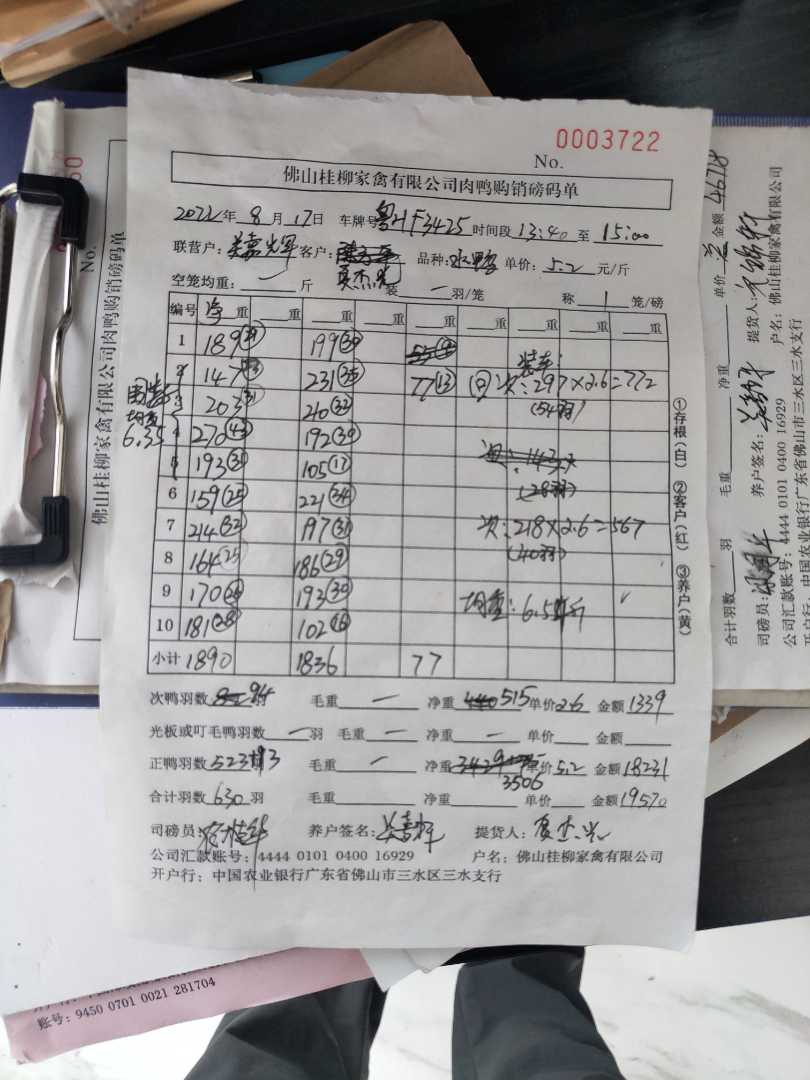 0003722
No.
佛山桂柳家禽有限公司肉鸭购销磅码单
2022年 8 月 17日 车牌号 粤 F3425 时间段 13:40 至 15:00
联营户: 辉 客户: 品种: 水鸭 单价: 5.2 元/斤
夏杰光
空笼均重: 一 斤 装 一 羽/笼 称 1 笼/磅
编号 净重 重 重 重 重 重 重 重 重
1 189 199(30)
装车:
2 147 231(35) 77(13) 次:297×2.6=772
(54羽)
3 203(31) 210(32)
均重
6.35
4 270(43) 192(30)
5 193(31) 105(17)
(28羽)
6 159(25) 221(34)
7 214(32) 197(31) 次:218×2.6=567
(40羽)
8 164(25) 186(29)
9 170 193(30) 均重:6.5斤
10 181(28) 102(16)
小计 1890 1836 77
次鸭羽数 94 羽 毛重 一 净重 515 单价 2.6 金额 1339
光板或叮毛鸭羽数 一 羽 毛重 一 净重 一 单价 金额
正鸭羽数 523 羽 毛重 一 净重 3506 单价 5.2 金额 18231
合计羽数 630 羽 毛重 净重 单价 金额 19570
司磅员: 养户签名: 提货人: 夏杰光
公司汇款账号: 4444 0101 0400 16929 户名: 佛山桂柳家禽有限公司
开户行: 中国农业银行广东省佛山市三水区三水支行
①存根(白) ②客户(红) ③养户(黄)
No.
佛山桂柳家禽有限公司肉鸭购销磅码单
净重 单价 金额 46718
羽 毛重
合计羽数
司磅员: 养户签名: 提货人:
公司汇款账号: 4444 0101 0400 16929 户名: 佛山桂柳家禽有限公司
中国农业银行广东省佛山市三水区三水支行
账号: 9450 0701 0021 281704